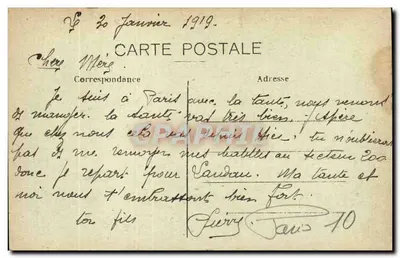 Le 20 Janvier 1919.
CARTE POSTALE
Chère Mère
Correspondance
Adresse
Je suis à Paris avec la tante, nous venons
de manger. la santé vas très bien. J'espère
que chez nous  tu n'oublieras
pas de me renvoyer mes babilles au secteur 200
donc je repart pour Landau. Ma tante et
moi nous t'embrassont bien fort.
ton fils Pierre Paris 10